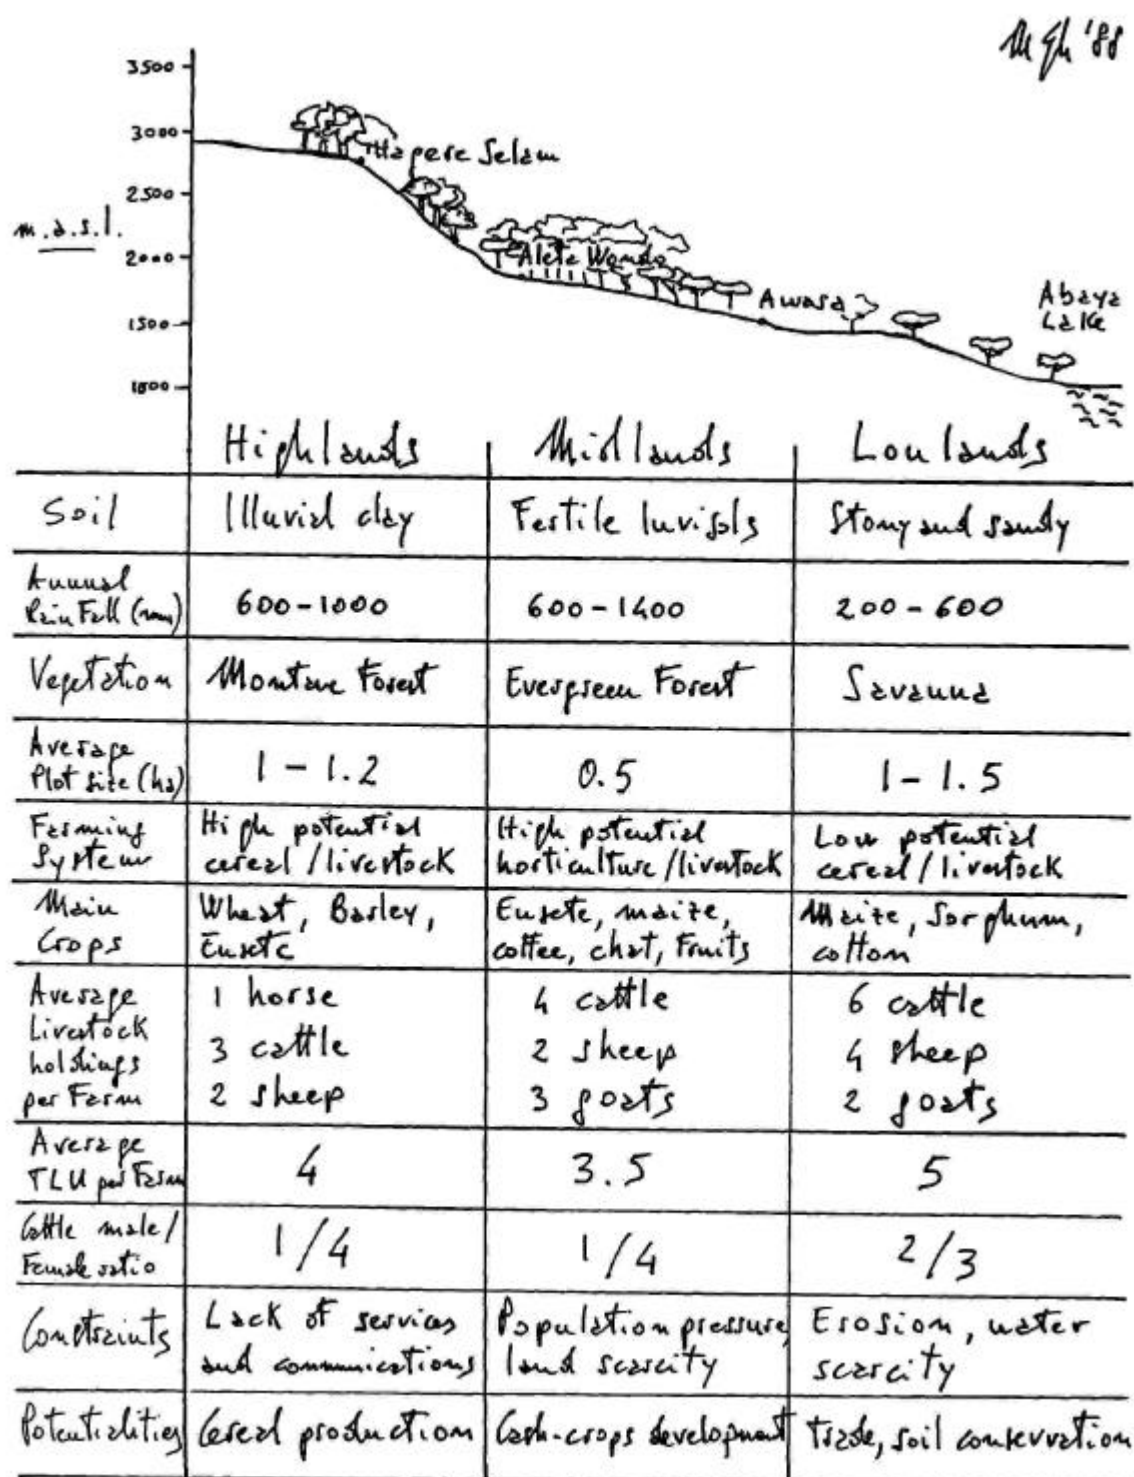 '88
3500
3000
Hapere Selam
2500
m.a.s.l.
2000
Aleta Wondo
Awasa
Abaya
Lake
1500
1000
Highlands Midlands Lowlands
Soil Illuvial clay Fertile luvisols Stony and sandy
Annual
Rain Fall (mm) 600-1000 600-1400 200-600
Vegetation Montane Forest Evergreen Forest Savanna
Average
Plot size (ha) 1-1.2 0.5 1-1.5
Farming
Systems
High potential
cereal/livestock
High potential
horticulture/livestock
Low potential
cereal/livestock
Main
Crops
Wheat, Barley,
Ensete
Ensete, maize,
coffee, chat, Fruits
Maize, Sorghum,
cotton
Average
Livestock
holdings
per Farm
1 horse
3 cattle
2 sheep
4 cattle
2 sheep
3 goats
6 cattle
4 sheep
2 goats
Average
TLU per Farm 4 3.5 5
Cattle male/
Female ratio 1/4 1/4 2/3
Constraints
Lack of services
and communications
Population pressure,
land scarcity
Erosion, water
scarcity
Potentialities Cereal production Cash-crops development Trade, soil conservation